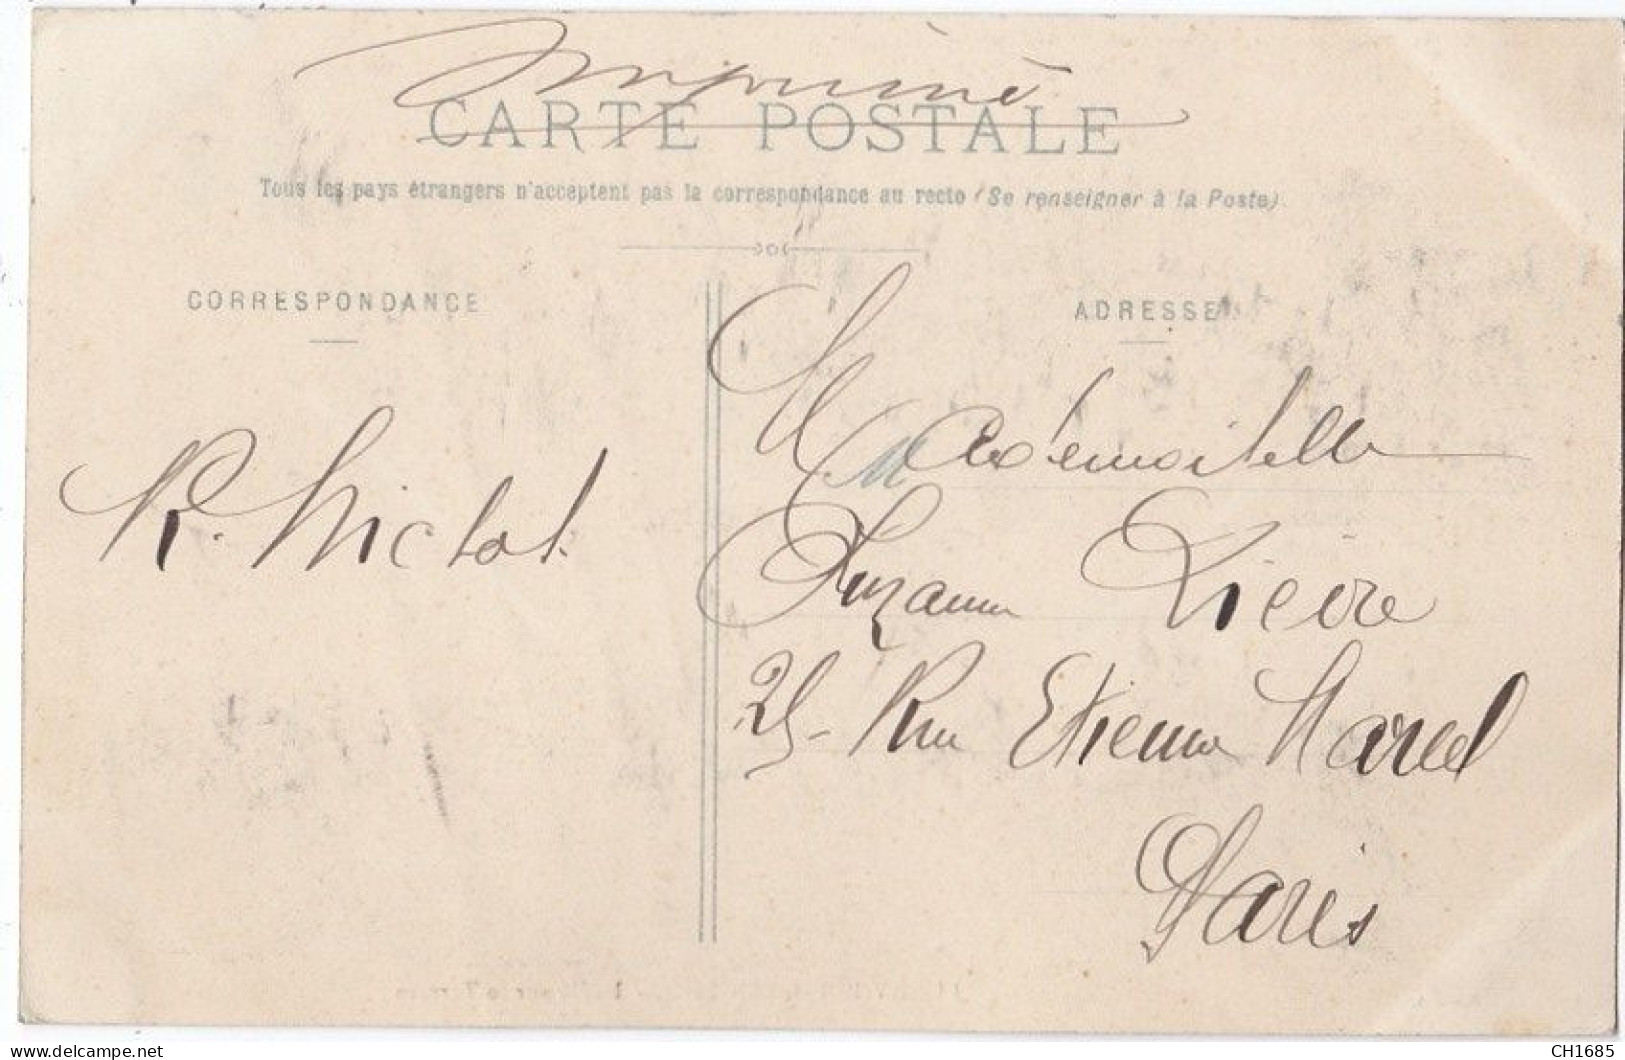 Imprimé
CARTE POSTALE
Tous les pays étrangers n'acceptent pas la correspondance au recto (Se renseigner à la Poste).
CORRESPONDANCE
ADRESSE
R. Michot
Mademoiselle
Suzanne Lièvre
25- Rue Etienne Marcel
Paris
www.delcampe.net
CH1685